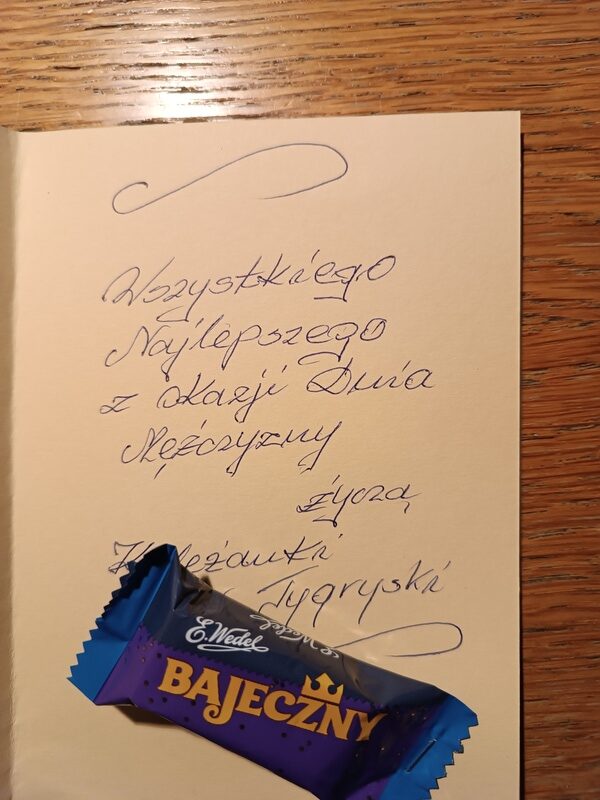 Wszystkiego
Najlepszego
z okazji Dnia
Mężczyzny
życzą
Koleżanki
Tygryski
E. Wedel
E. Wedel
BAJECZNY